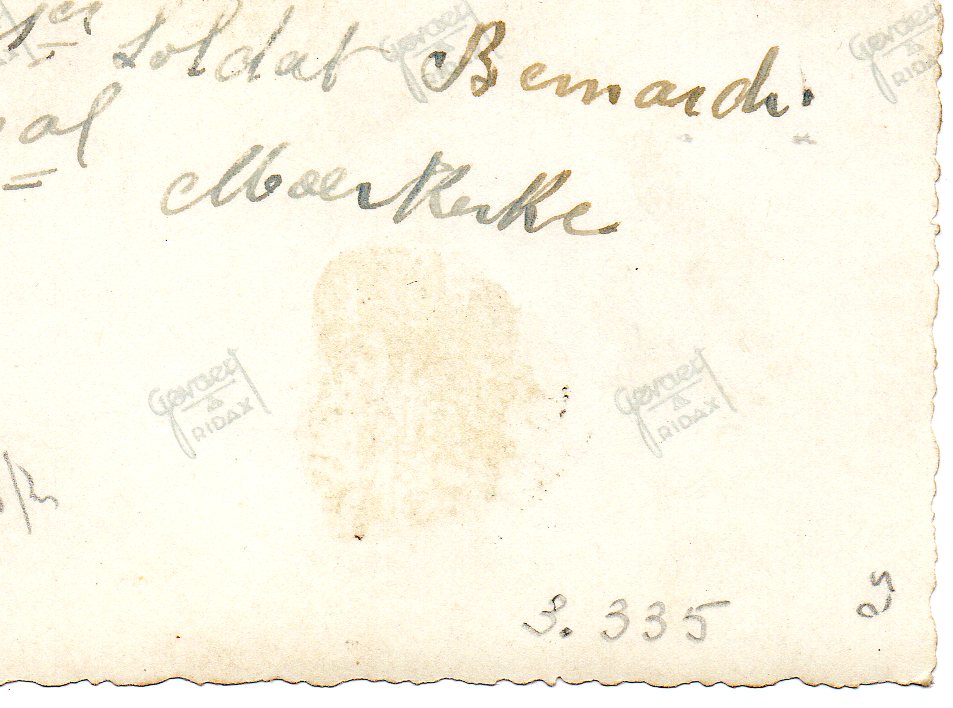 soldat Bernard.
Moerkerke
Gevaert
RIDAX
Gevaert
RIDAX
Gevaert
RIDAX
Gevaert
RIDAX
3.335